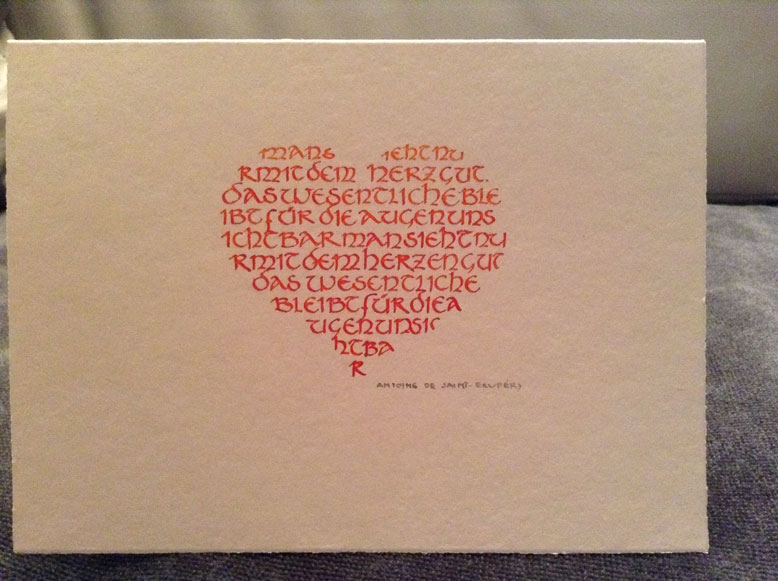 MANS IEHTNU
RMITDEM HERZGUT.
DASWESENTLICHEBLE
IBTFÜRDIEAUGENUNS
ICHTBARMANSIEHTNU
RMITDEMHERZENGUT
DASWESENTLICHE
BLEIBTFÜRDIEA
UGENUNSIC
HTBA
R
ANTOINE DE SAINT-EXUPÉRY